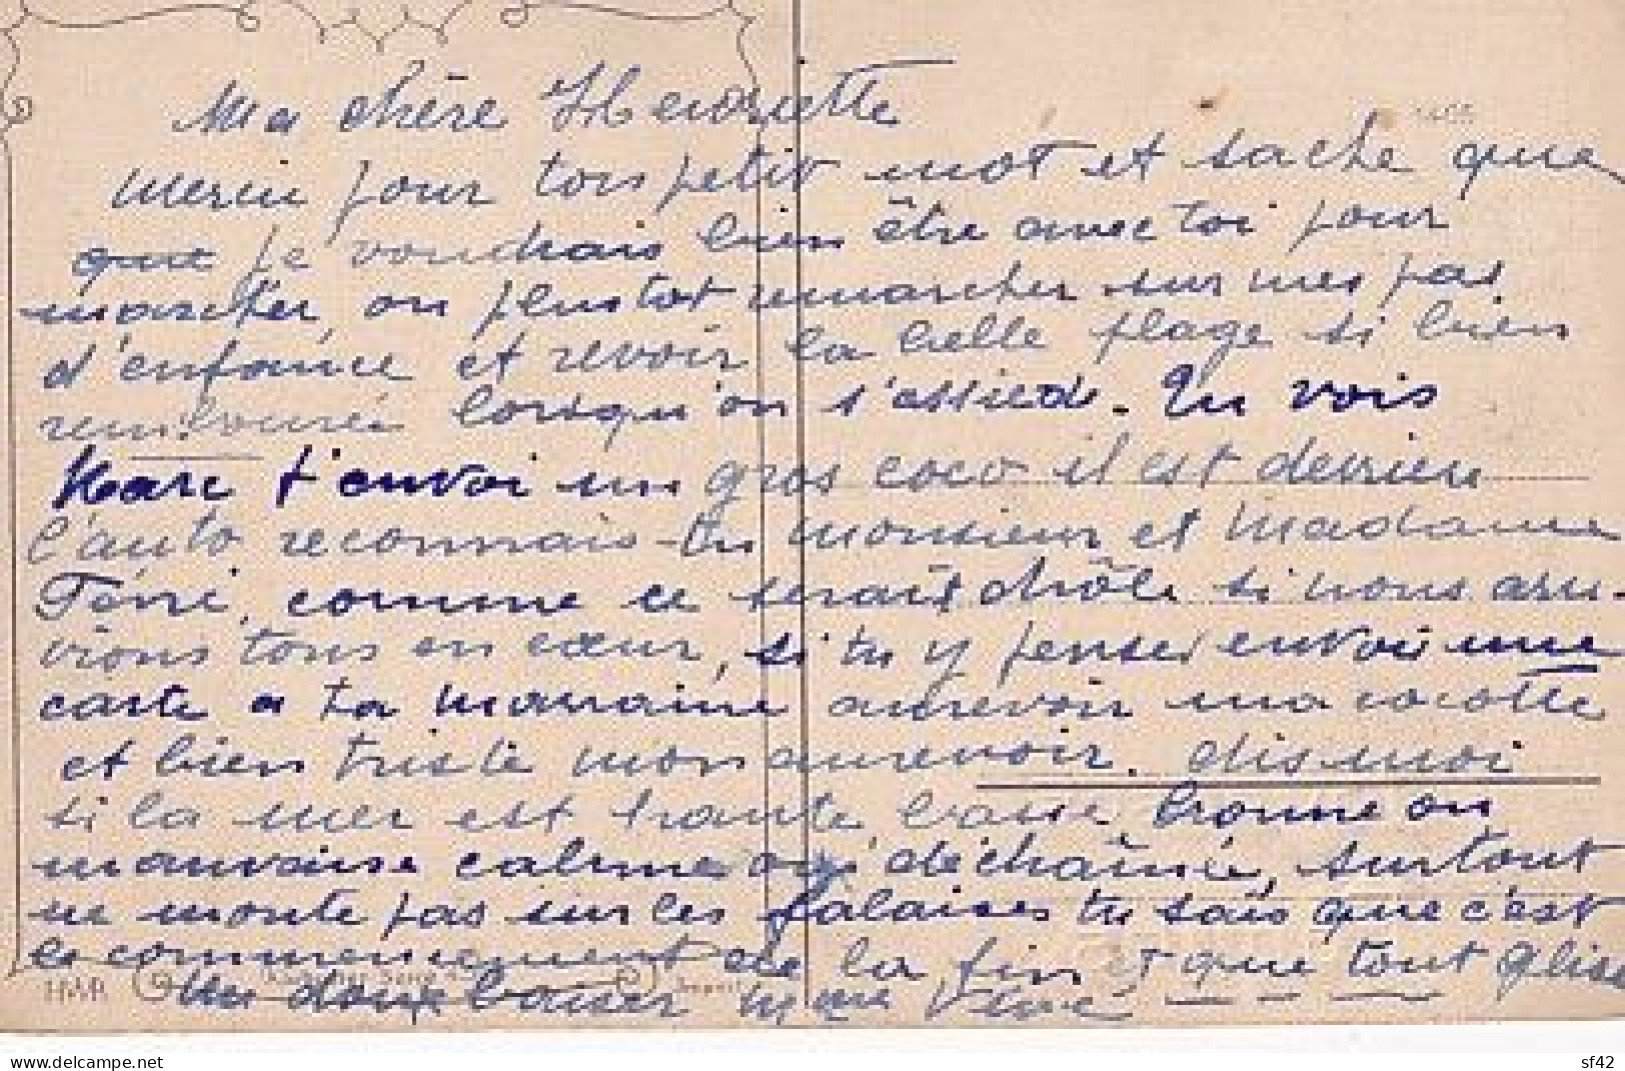 Ma chère Henriette
Merci pour tois petit mot et sache que
que je voudrais bien être avec toi pour
marcher, ou plustot remarcher sur mes pas
d'enfance et revoir la belle plage si bien
lorsqu'on s'assied. Tu vois
Marc t'envoi un gros coco il est derriere
l'auto reconnais-tu monsieur et Madame
comme ce serait drôle si nous arri-
vions tous en cœur, si tu y penses envoi une
carte a ta marraine aurevoir ma cocotte
et bien triste mon aurevoir. dis moi
si la mer est haute, basse, bonne ou
mauvaise calme ou déchaînée, surtout
ne monte pas sur les falaises tu sais que c'est
le commencement de la fin et que tout glisse
Un doux baiser
HAR
sf42
https://www.delcampe.net